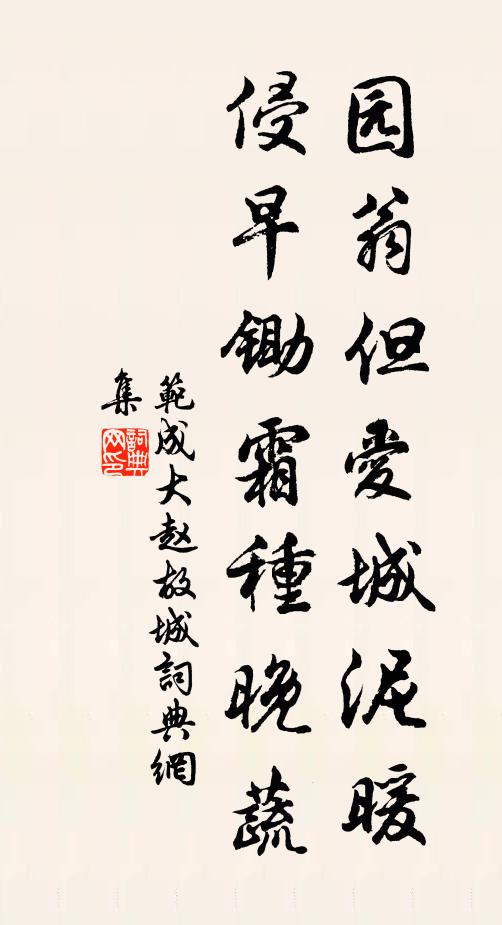 园翁但爱城泥暖
侵早锄霜種晚蔬
範成大赵故城詞典網
集
詞典
网印